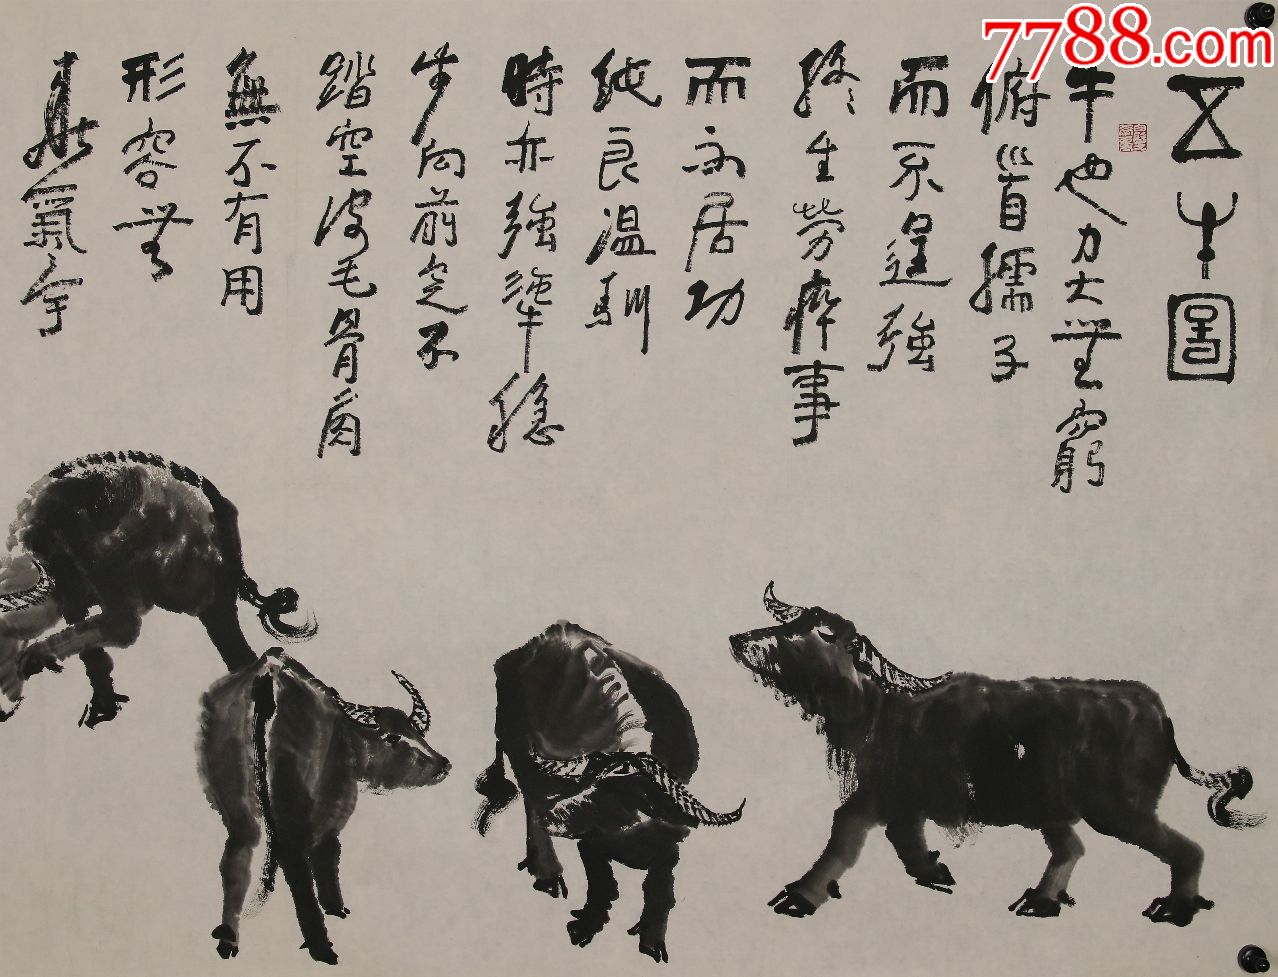 7788.com
五牛圖
牛也力大無窮
俯首孺子
而不逞強
終生勞瘁事
而不居功
純良溫馴
時亦強犟穩
步向前足不
踏空皮毛骨角
無不有用
形容無
華氣宇